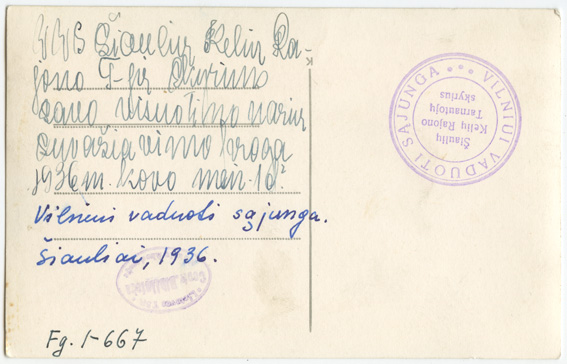 VVS Šiaulių Kelių Ra-
jono T-jų Skyrius
savo visuotino narių
suvažiavimo proga
1936 m. kovo mėn. 1 d.
Vilniui vaduoti sąjunga.
Šiauliai, 1936.
Fg. 1-667
VILNIUI VADUOTI SĄJUNGA
Šiaulių
Kelių Rajono
Tarnautojų
skyrius